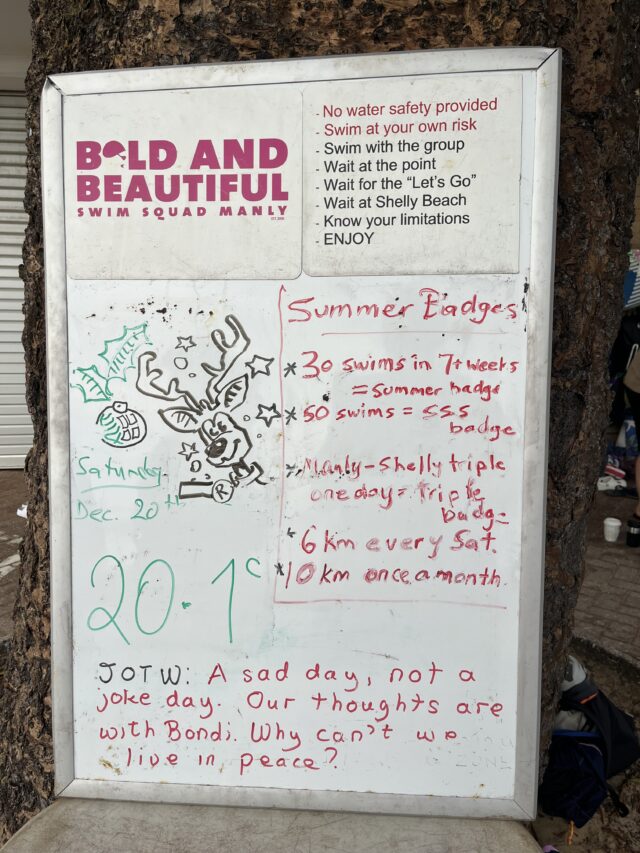 BOLD AND
BEAUTIFUL
SWIM SQUAD MANLY
- No water safety provided
- Swim at your own risk
- Swim with the group
- Wait at the point
- Wait for the "Let's Go"
- Wait at Shelly Beach
- Know your limitations
- ENJOY
Summer Badges
* 30 swims in 7+ weeks
= summer badge
* 50 swims = SSS
badge
* Manly-Shelly triple
one day = Triple
badge
* 6 km every Sat.
* 10 km once a month
Saturday
Dec. 20th
20.1c
JOTW: A sad day, not a
joke day. Our thoughts are
with Bondi. Why can't we
live in peace?